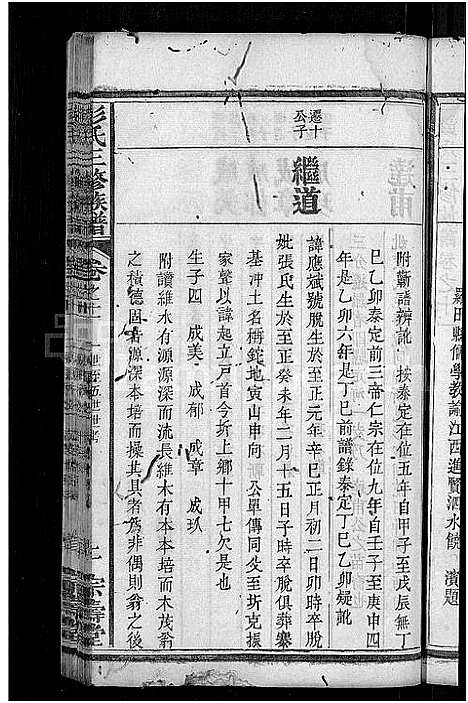 羅田縣儒學教諭江西進賢酒水饒 濱題
遷十公子
繼道
附斷諸辨訛 按泰定在位五年自甲子至戊辰無丁
巳乙卯泰定前三帝仁宗在位九年自壬子至庚申四
年是乙卯六年是丁巳前譜錄泰定丁巳乙卯疑訛
諱應斌號脫生於至正元年辛巳正月初二日卯時卒脫
妣張氏生於至正癸未年二月十五日子時卒脫俱葬寨
基冲土名橫錠地寅山申向 公單傳同攵至圻克振
家聲以諱起立戶首今圻上鄉十甲七欠是也
生子四 成美 成郁 成章 成玖
附讚維水有源源深而流長維木有本本培而木茂翁
之積德固者源深本培而操其具者為非偶則翁之後
彭氏三修族譜
卷之十一
一世至五世世考
七
宗壽堂